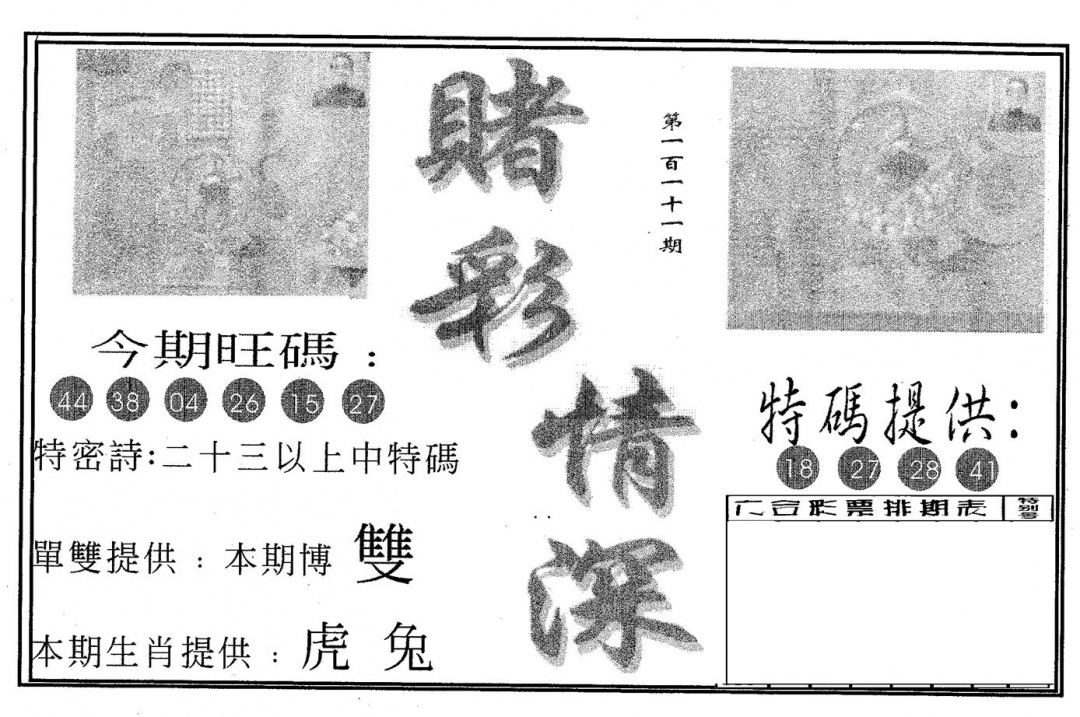 賭彩情深
第一百一十一期
今期旺碼：
44 38 04 26 15 27
特密詩:二十三以上中特碼
單雙提供：本期博 雙
本期生肖提供：虎 兔
特碼提供：
18 27 28 41
六合彩票排期表 特別號